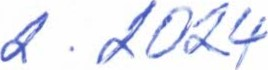 2. 2024